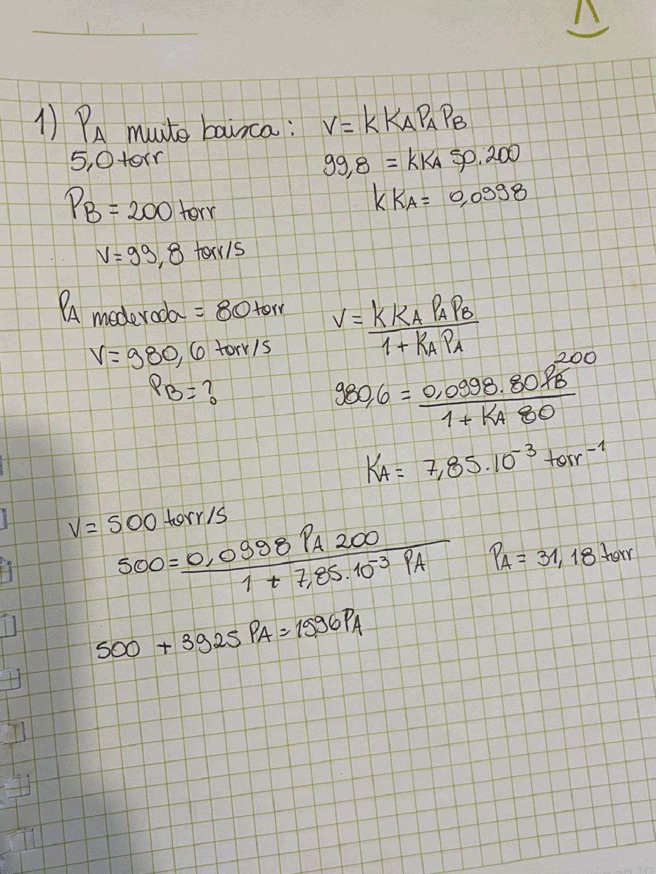 1) PA muito baixa: v = k KA PA PB
5,0 torr
99,8 = kKA 50.200
PB = 200 torr
kKA = 0,0998
v = 99,8 torr/s
PA moderada = 80 torr
v = k KA PA PB / 1 + KA PA
v = 980,6 torr/s
PB = ?
980,6 = 0,0998. 80 PB 200 / 1 + KA 80
KA = 7,85.10⁻³ torr⁻¹
v = 500 torr/s
500 = 0,0998 PA 200 / 1 + 7,85.10⁻³ PA
PA = 31,18 torr
500 + 3925 PA = 1996 PA